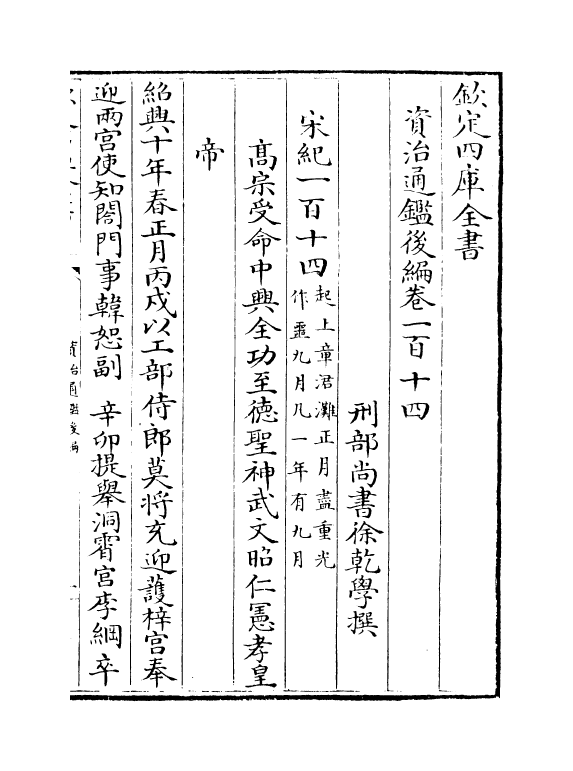 欽定四庫全書
資治通鑑後編卷一百十四
刑部尚書徐乾學撰
宋紀一百十四起上章涒灘正月盡重光
作噩九月凡一年有九月
高宗受命中興全功至德聖神武文昭仁憲孝皇
帝
紹興十年春正月丙戌以工部侍郎莫將充迎護梓宫奉
迎兩宫使知閤門事韓恕副 辛卯提舉洞霄宫李綱卒
資治通鑑後編